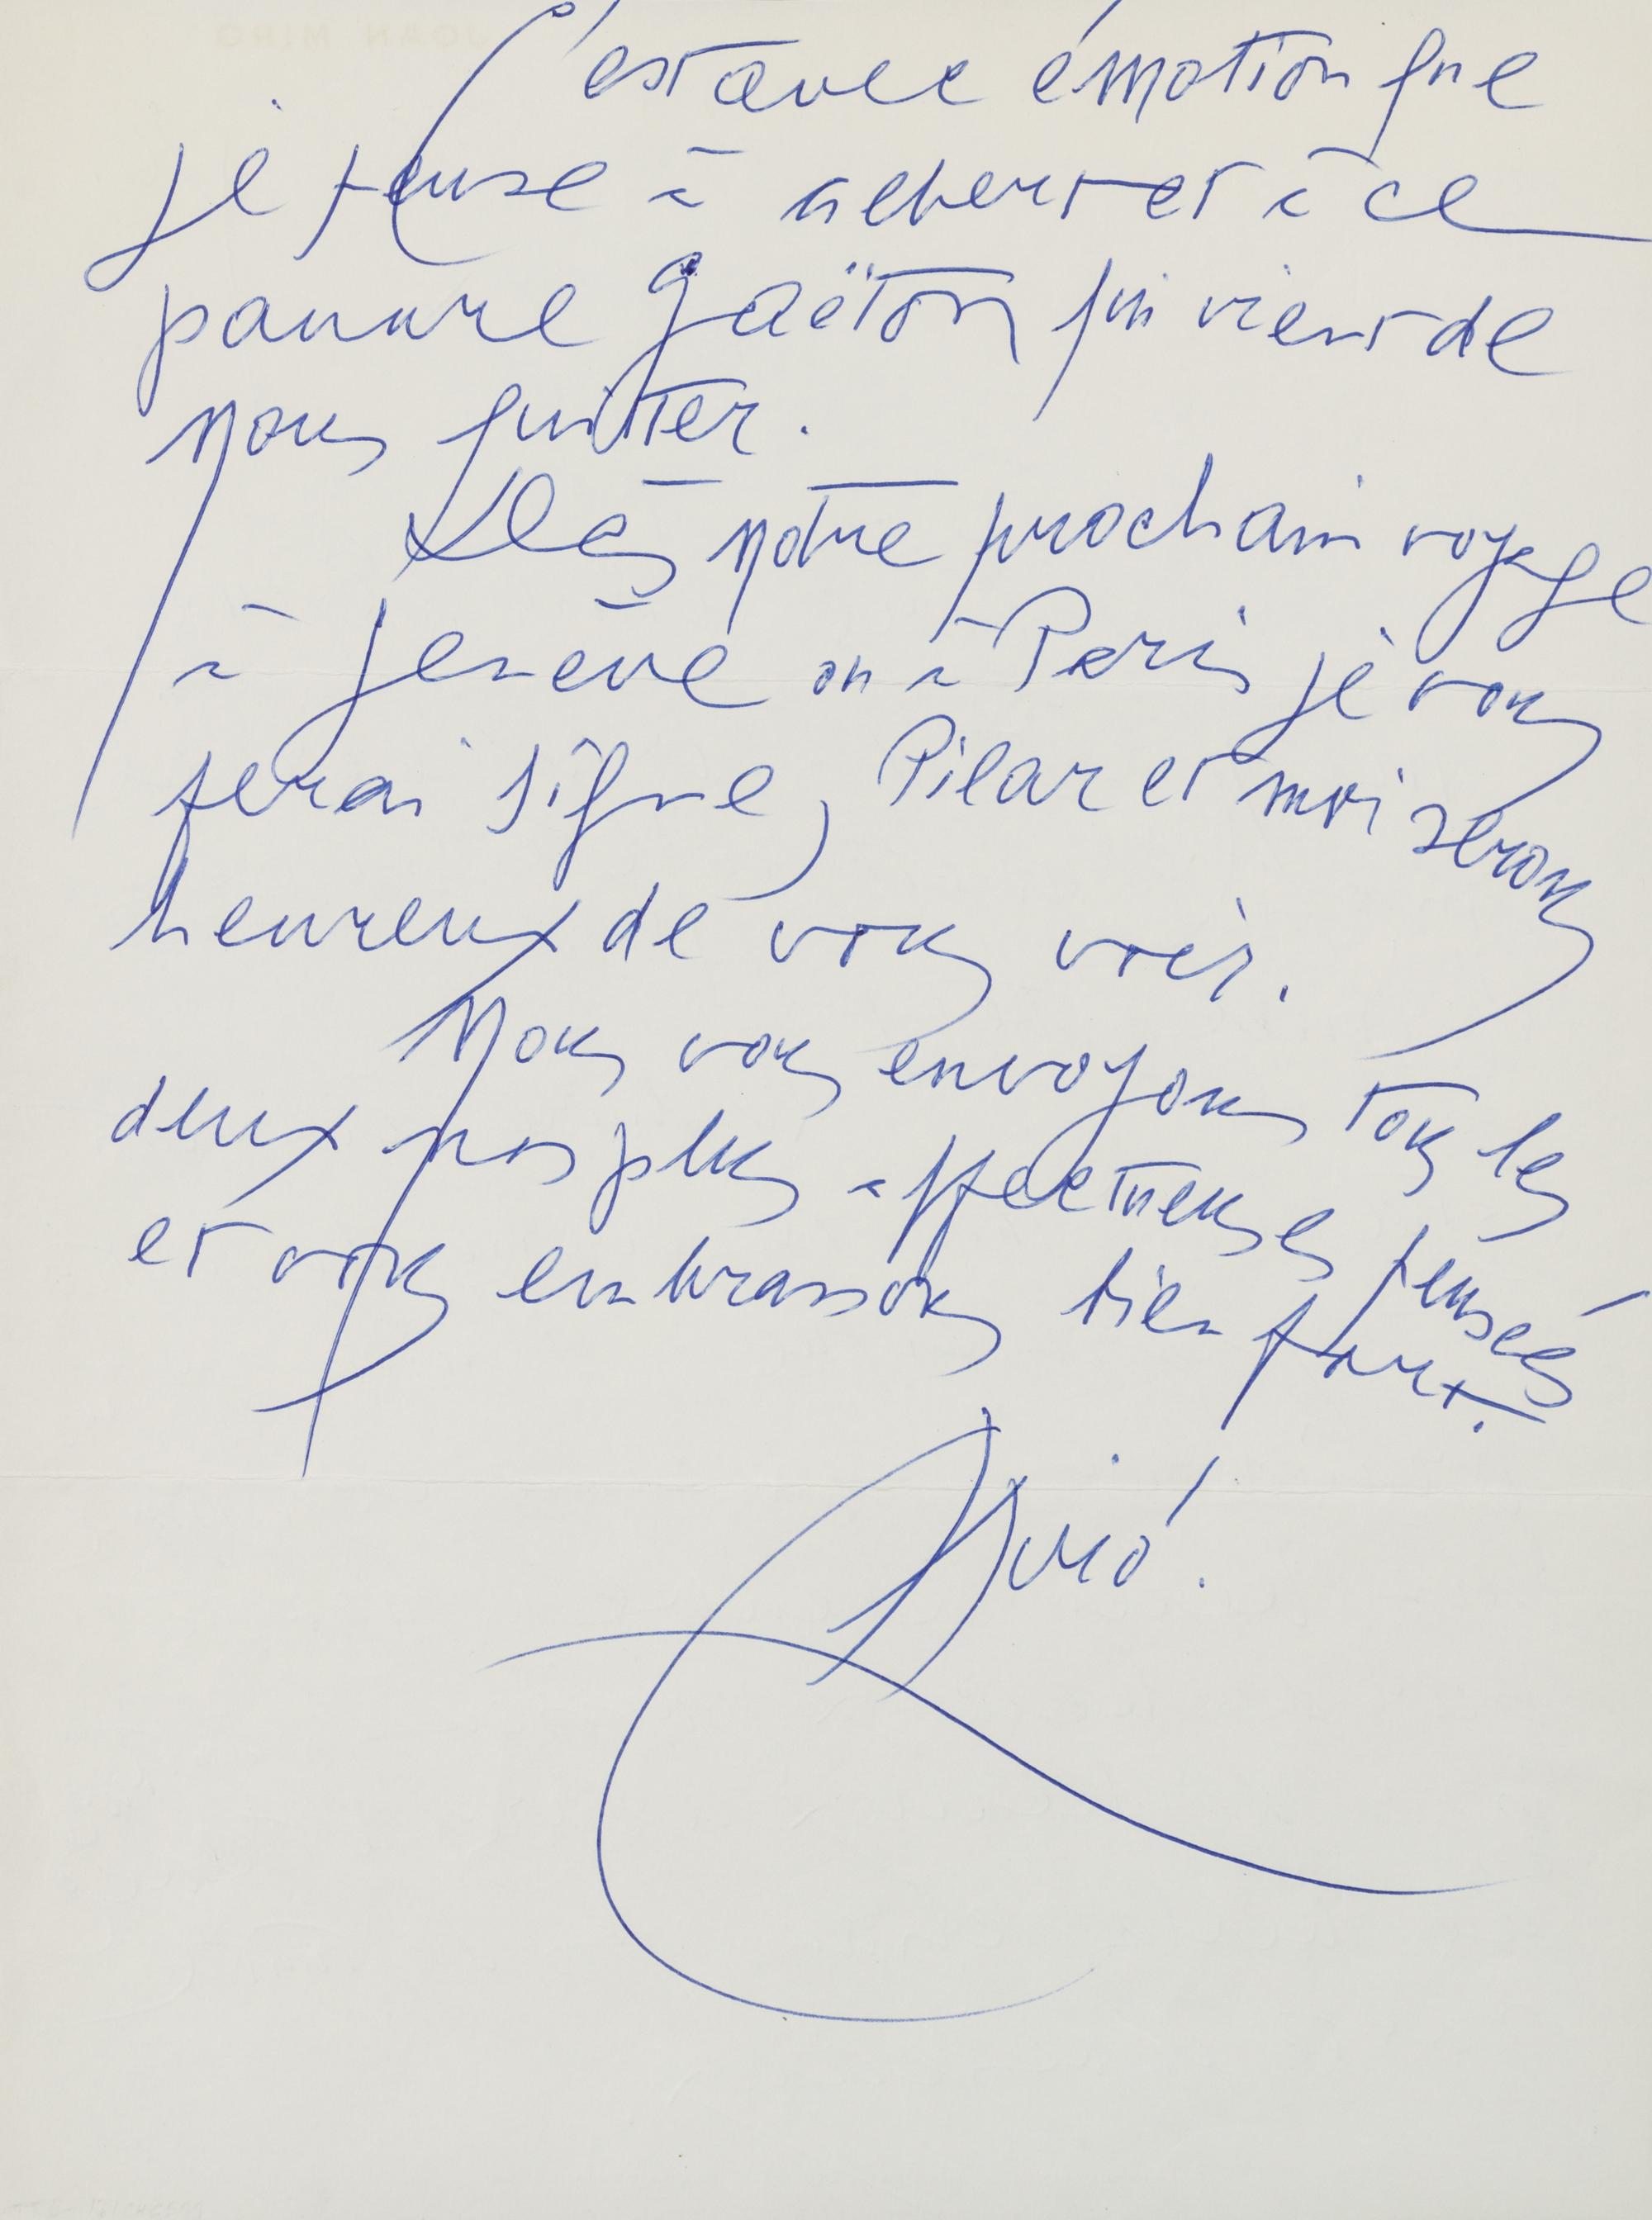 C'est avec émotion que
je pense à albert et à ce
pauvre gaëtan qui vient de
nous quitter.
Dès notre prochain voyage
à genève ou à Paris je vous
ferai signe, Pilar et moi serons
heureux de vous voir.
Nous vous envoyons tous les
deux nos plus affectueuses pensées
et vous embrassons bien fort.
Miró.